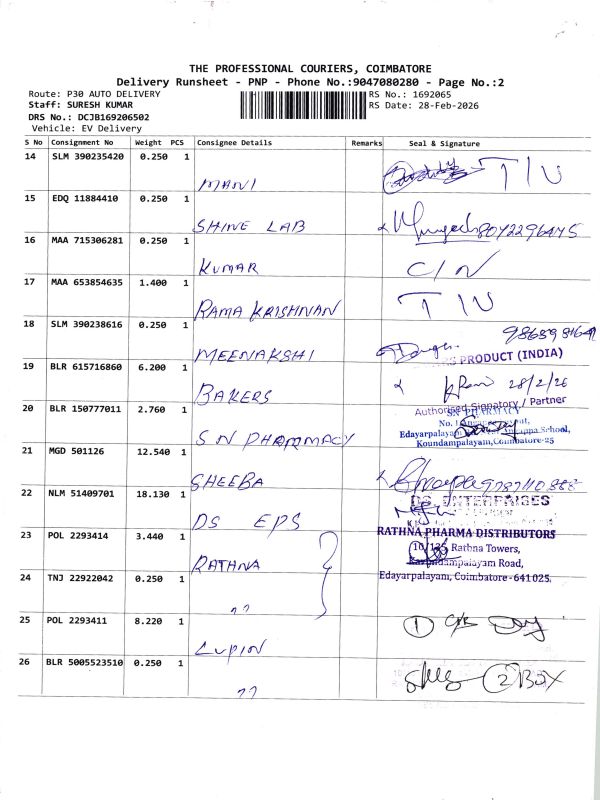 THE PROFESSIONAL COURIERS, COIMBATORE
Delivery Runsheet - PNP - Phone No.:9047080280 - Page No.:2
Route: P30 AUTO DELIVERY
Staff: SURESH KUMAR
DRS No.: DCJB169206502
Vehicle: EV Delivery
RS No.: 1692065
RS Date: 28-Feb-2026
S No Consignment No Weight PCS Consignee Details Remarks Seal & Signature
14 SLM 390235420 0.250 1
MANI T/U
15 EDQ 11884410 0.250 1
SHINE LAB 8072296475
16 MAA 715306281 0.250 1
KUMAR C/N
17 MAA 653854635 1.400 1
RAMA KRISHNAN T/U
18 SLM 390238616 0.250 1
MEENAKSHI
PRODUCT (INDIA)
19 BLR 615716860 6.200 1
BAKERS 28/2/26
Authorised Signatory / Partner
20 BLR 150777011 2.760 1
S N PHARMACY
SN PHARMACY
Edayarpalayam
School,
Koundampalayam, Coimbatore-25
21 MGD 501126 12.540 1
SHEEBA
22 NLM 51409701 18.130 1
DS EPS
DS ENTERPRISES
23 POL 2293414 3.440 1
RATHNA
RATHNA PHARMA DISTRIBUTORS
10/135, Rathna Towers,
Road,
24 TNJ 22922042 0.250 1
Edayarpalayam, Coimbatore - 641 025.
"
25 POL 2293411 8.220 1
LUPIN 1
26 BLR 5005523510 0.250 1
" 2 BOX